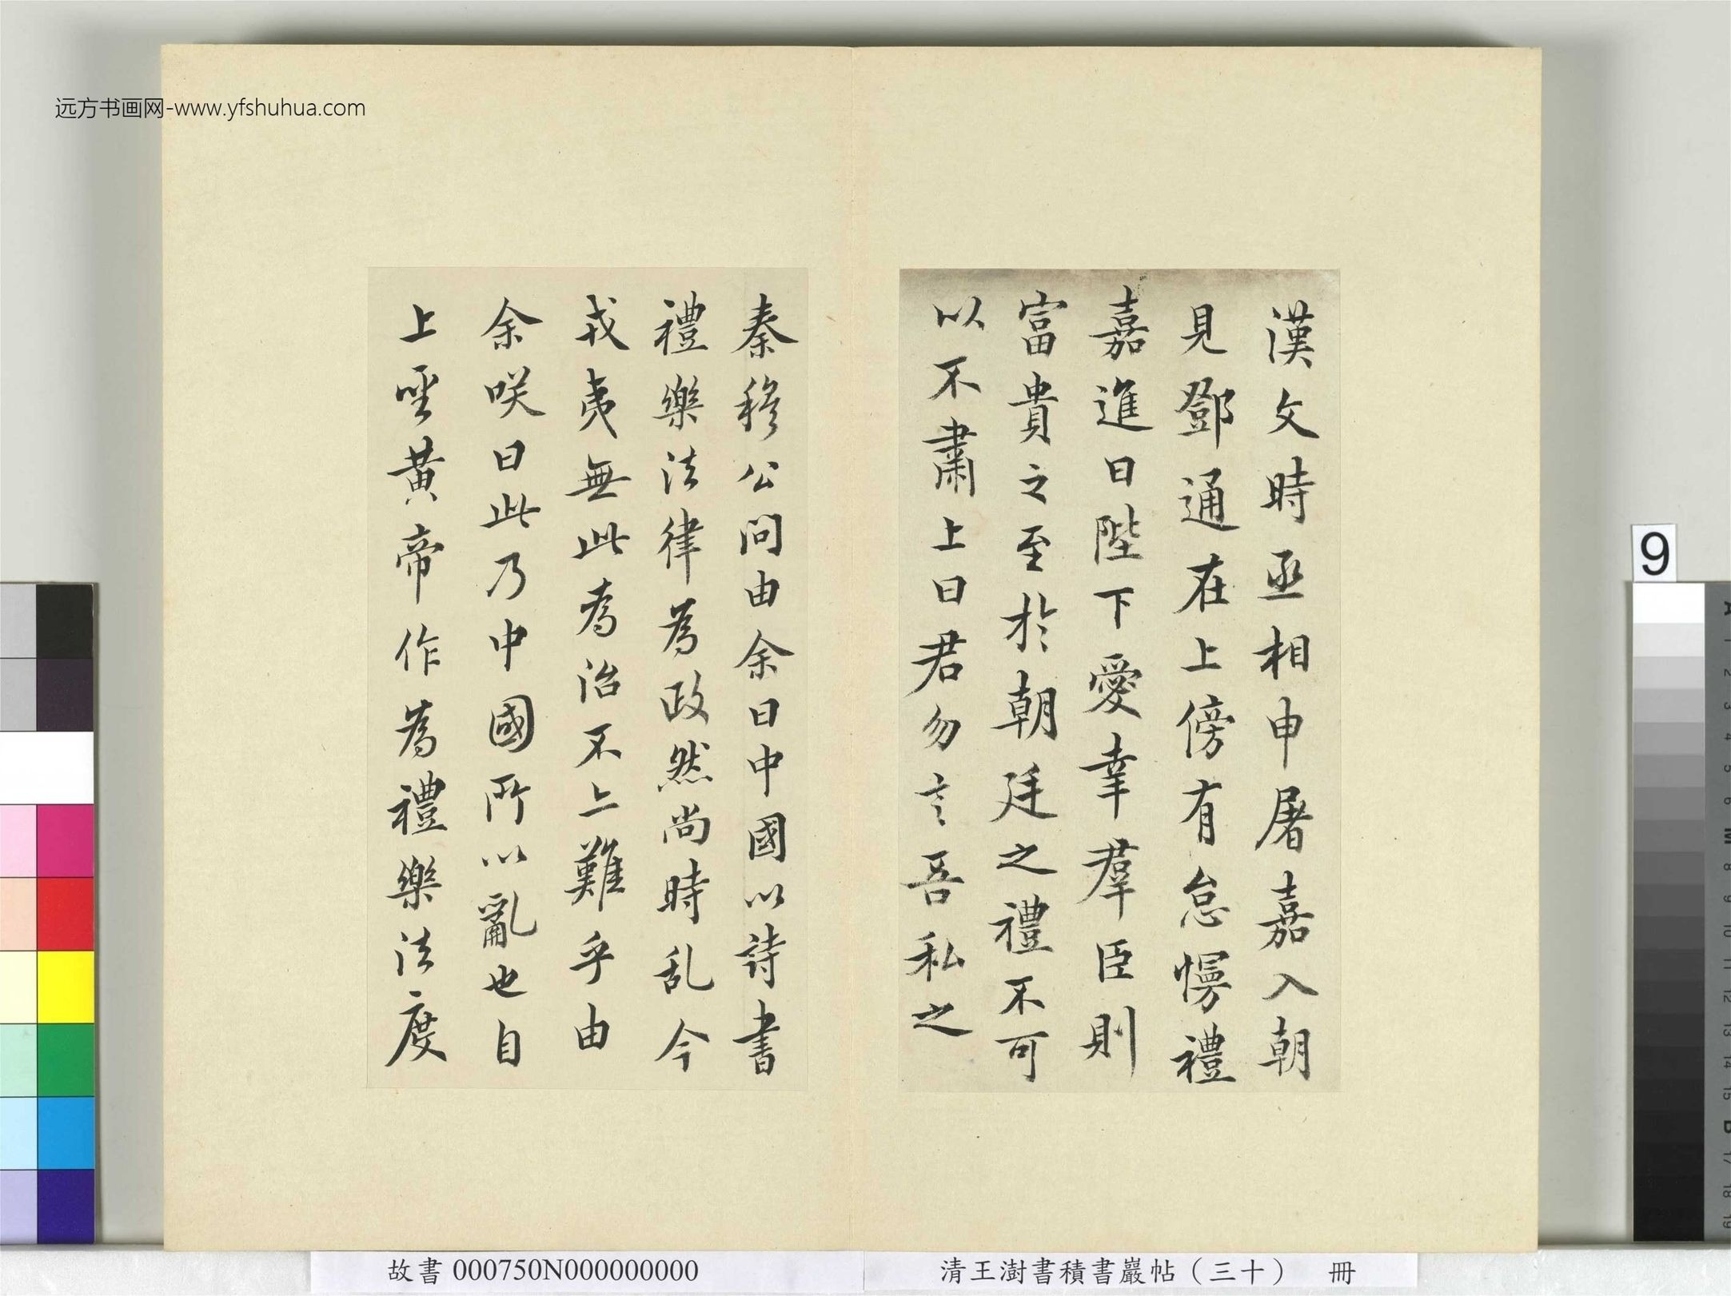 远方书画网-www.yfshuhua.com
漢文時丞相申屠嘉入朝
見鄧通在上傍有怠慢禮
嘉進曰陛下愛幸群臣則
富貴之至於朝廷之禮不可
以不肅上曰君勿言吾私之
秦穆公問由余曰中國以詩書
禮樂法律為政然尚時乱今
戎夷無此為治不亦難乎由
余咲曰此乃中國所以亂也自
上聖黃帝作為禮樂法度
9
故書000750N000000000
清王澍書積書巖帖（三十） 冊